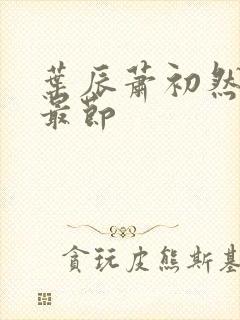 葉辰蕭初然
最節
貪玩皮熊斯基